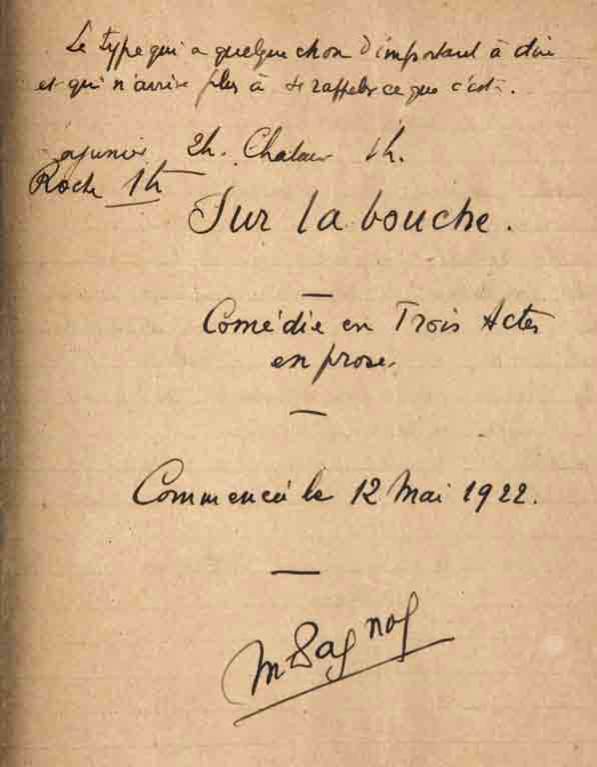 Le type qui a quelque chose d'important à dire
et qui n'arrive plus à se rappeler ce que c'est.
2h. 1h.
Roche 1h
Sur la bouche.
Comédie en Trois Actes
en prose.
Commencée le 12 Mai 1922.
M Pagnol